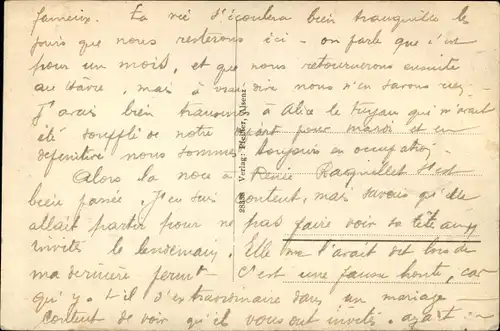 fameux. La vie s'écoulera bien tranquille les
jours que nous resterons ici - on parle que c'est
pour un mois, et que nous retournerons ensuite
au Havre, mais à vrai dire nous n'en savons rien
J'avais bien transmis à Alice le tuyau qui m'avait
été soufflé de notre départ pour mardi et en
définitive nous sommes toujours en occupation.
Alors la noce à Renée Racquillet s'est
bien passée. J'en suis content, mais savais qu'elle
allait partir pour ne pas faire voir sa tête aux
invités le lendemain. Elle me l'avait dit lors de
ma dernière perm. C'est une fausse honte, car
qu'y a-t-il d'extraordinaire dans un mariage
content de voir qu'ils vous ont invités. ayant
28338 Verlag: Alsenz